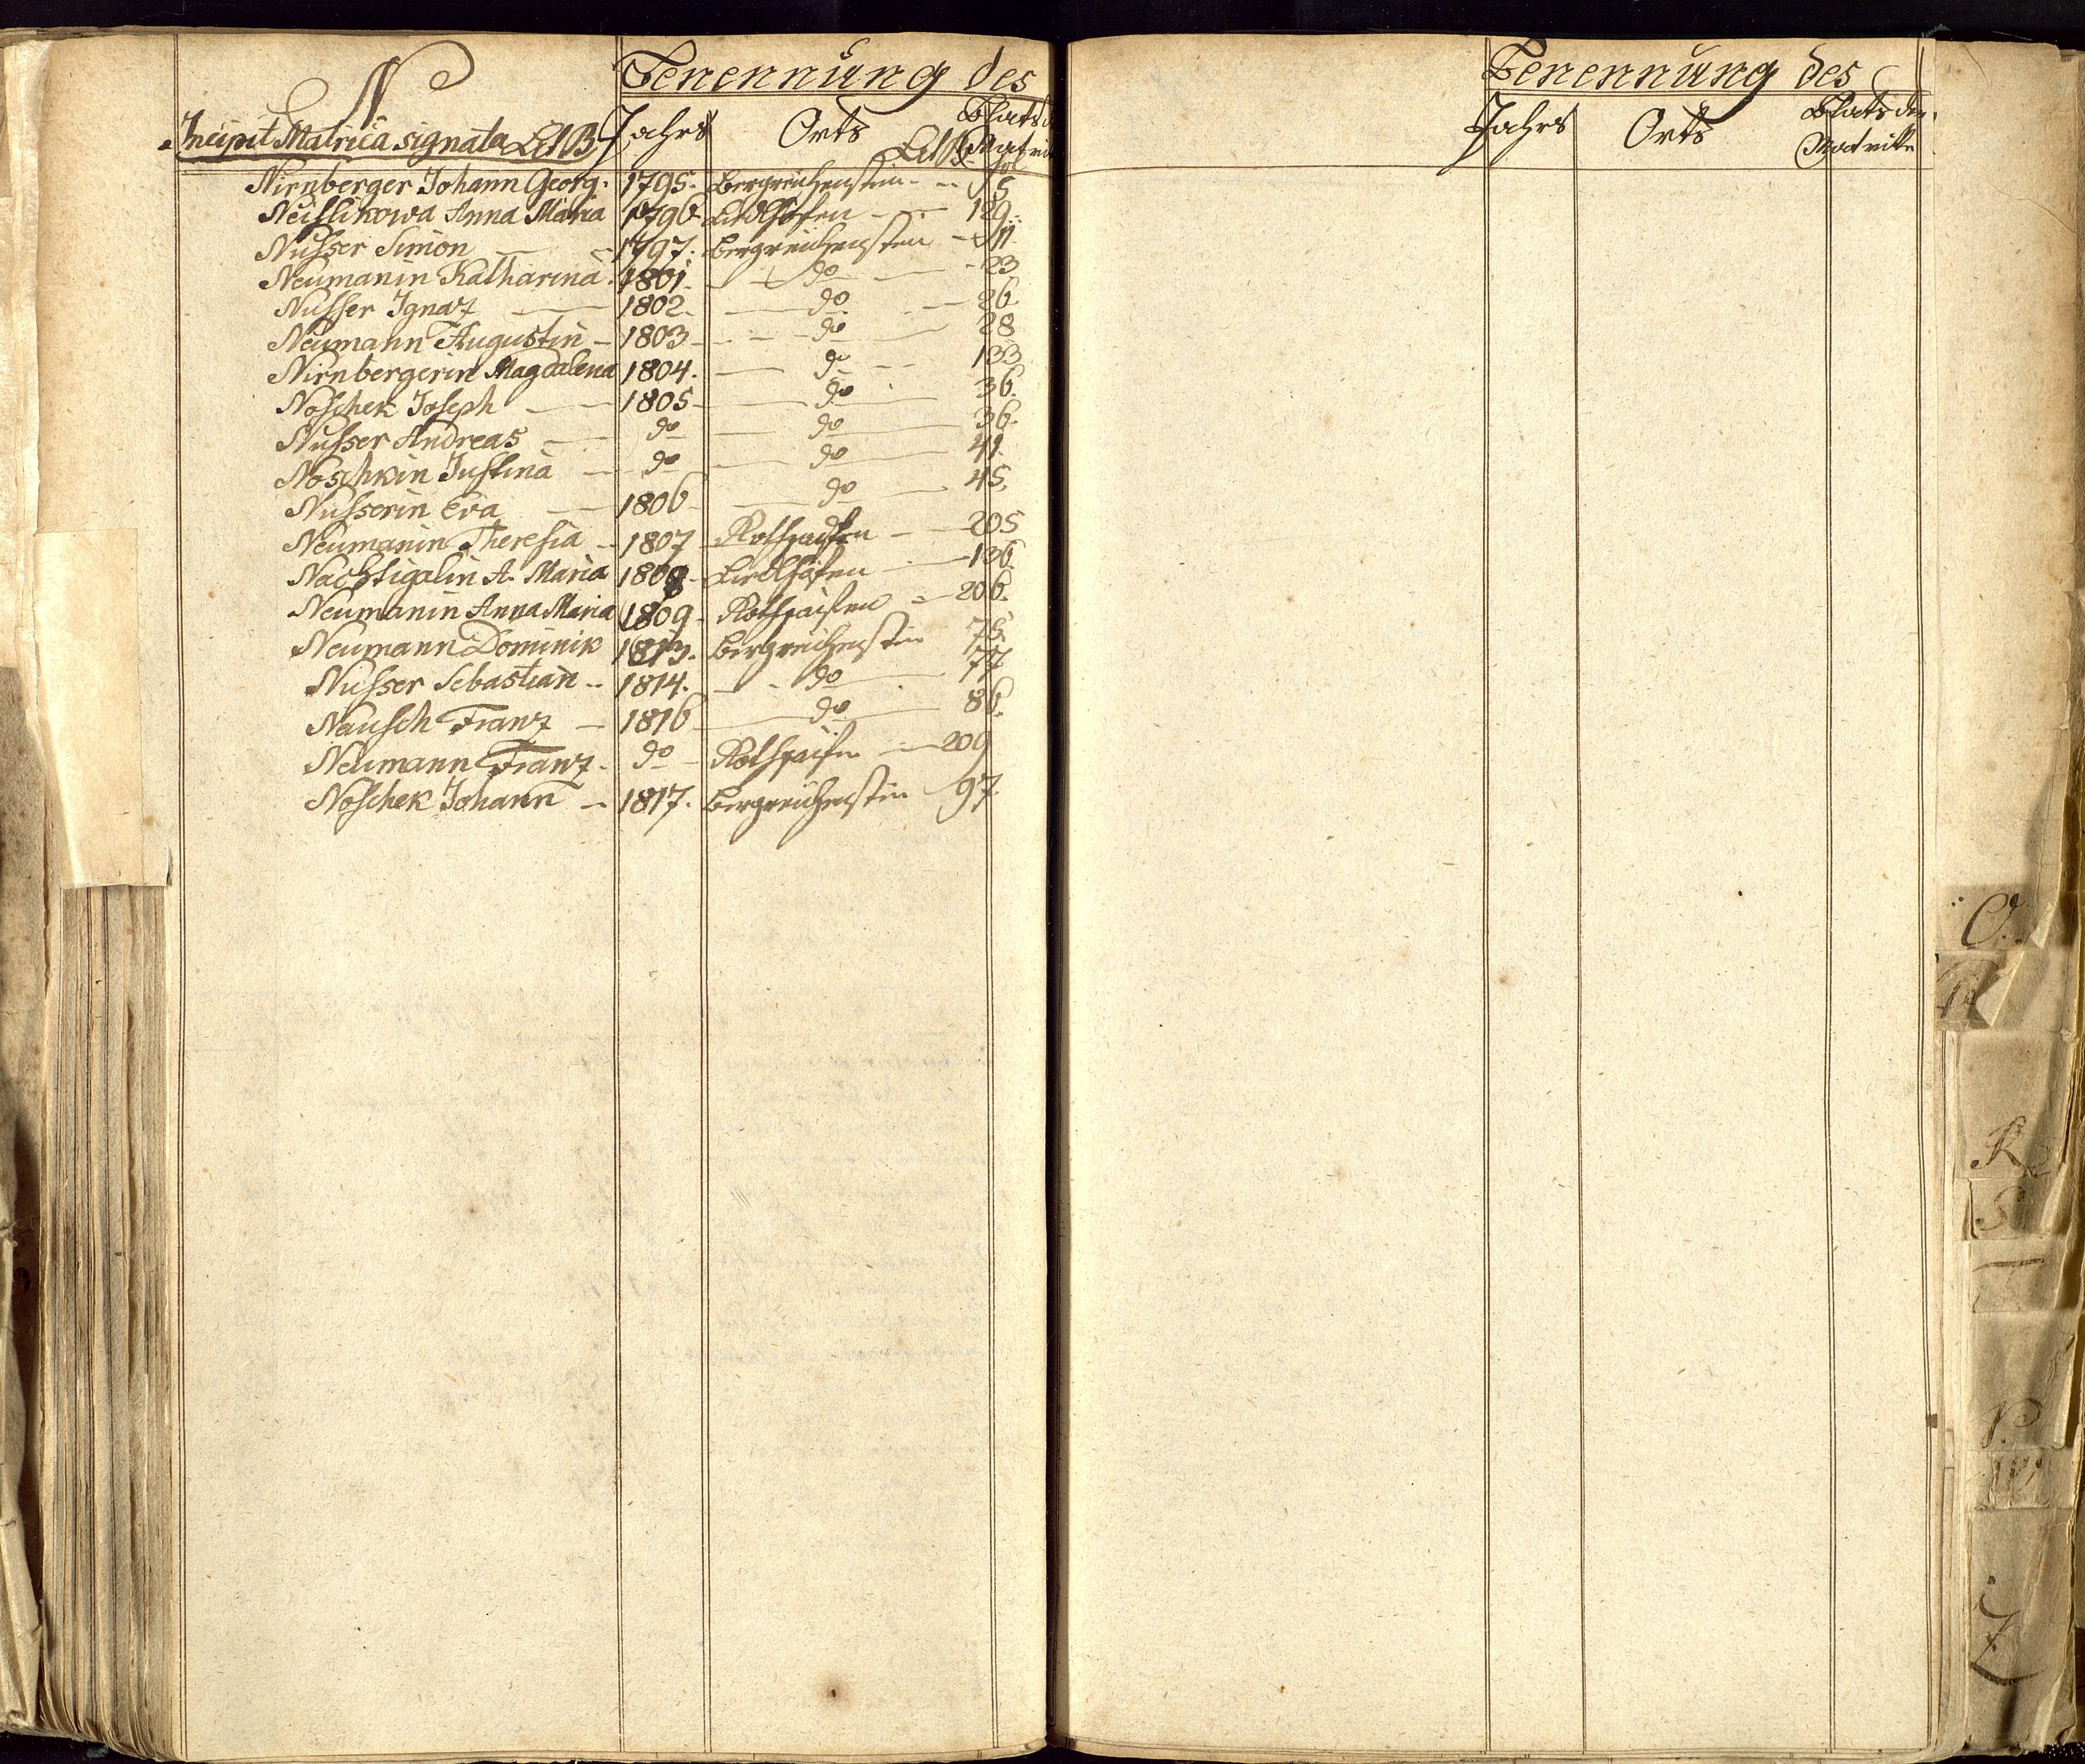 N
Benennung des
Incipit Matrica signata Lit B.
Jahrs Orts Blats der
Lit B. Matrik
fol
Nirnberger Johann Georg. 1795. Bergreichenstein 5
Neislikowa Anna Maria 1796 Liedlhöfen 129
Nusser Simon 1797. Bergreichenstein 11
Neumanin Katharina. 1801. do 23
Nusser Ignaz 1802. do 26
Neumann Augustin 1803 do 28
Nirnbergerin Magdalena 1804. do 133
Noschek Joseph 1805 do 36.
Nusser Andreas do do 36.
Noschkin Justina do do 41.
Nusserin Eva 1806 do 45.
Neumanin Theresia 1807 Rothsaifen 205
Nachtigalin A. Maria 1808 Liedlhöfen 136.
Neumanin Anna Maria 1809 Rothsaifen 206.
Neumann Dominik 1813. Bergreichenstein 75.
Nusser Sebastian 1814. do 77
Nausch Franz 1816 do 86.
Neumann Franz. do Rothsaifen 209
Noschek Johann 1817. Bergreichenstein 97.
Benennung des
Jahrs Orts Blats der
Matrikl
O.
R
S
T
V.
W
Z